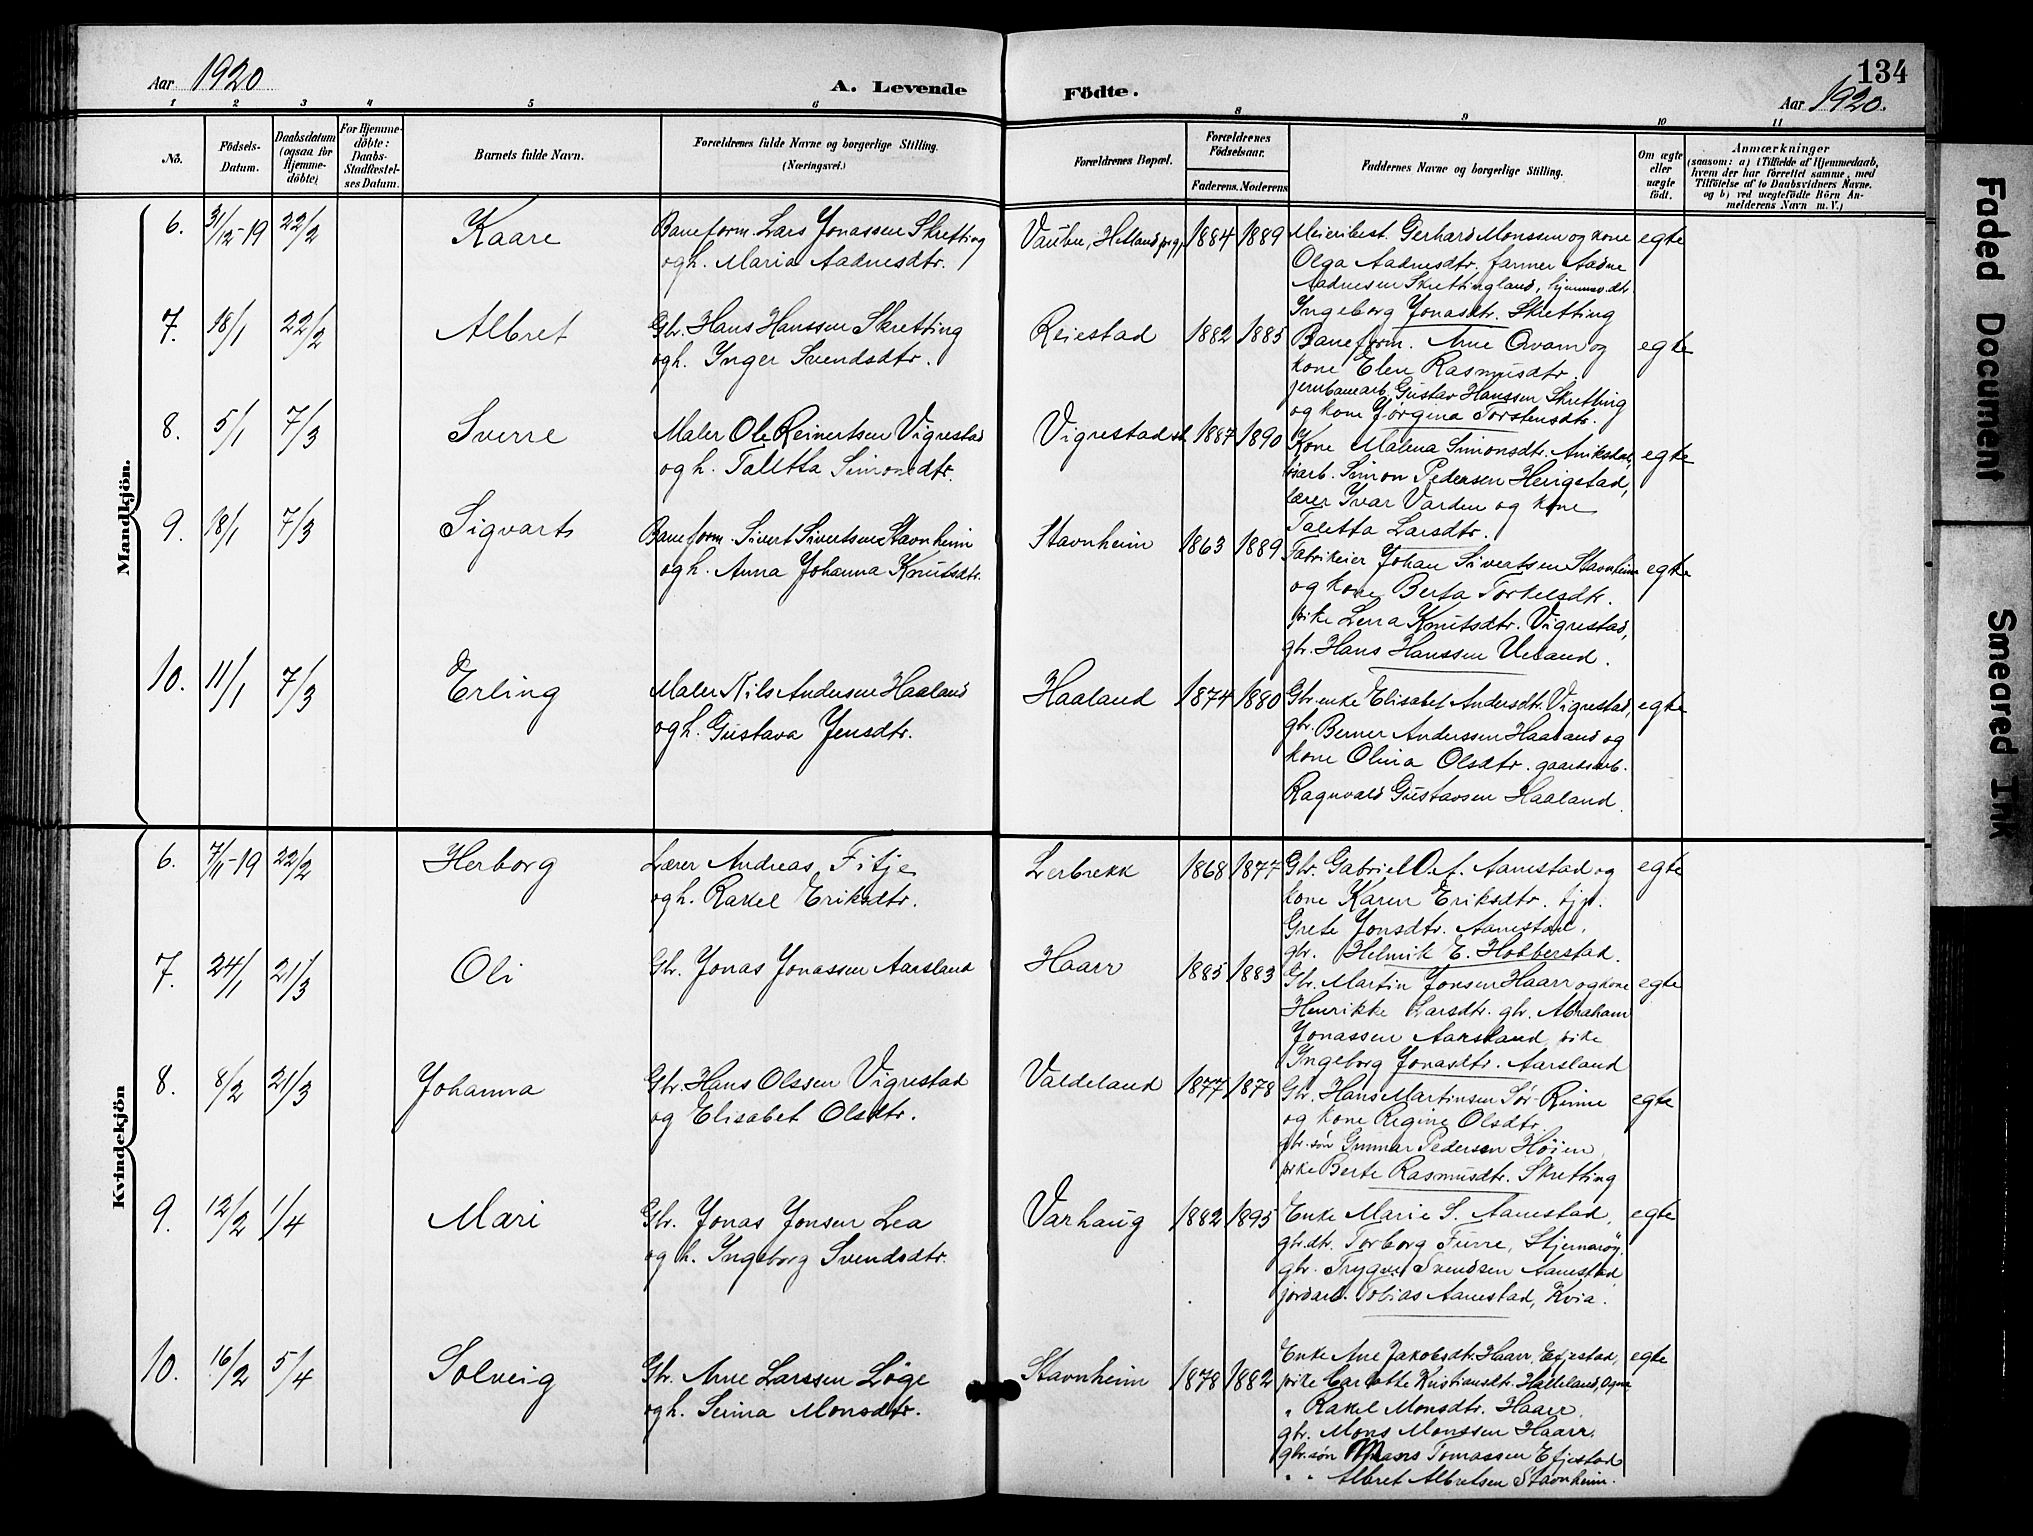 Aar 1920
A. Levende
Födte.
134
Aar 1920.
1 2 3 4 5 6 8 9 10 11
No.
Födsels-
Datum.
Daabsdatum
(ogsaa for
Hjemme-
döbte)
For Hjemme-
döbte:
Daabs-
Stadfæstel-
ses Datum.
Barnets fulde Navn.
Forældrenes fulde Navne og borgerlige Stilling.
(Næringsvei.)
Forældrenes Bopæl.
Forældrenes
Födselsaar.
Faderens. Moderens
Faddernes Navne og borgerlige Stilling.
Om ægte
eller
uægte
födt.
Anmærkninger
(saasom: a) i Tilfælde af Hjemmedaab,
hvem der har forrettet samme, med
Tilföielse af to Daabsvidners Navne.
og b) ved uægtefödte Börn An-
melderens Navn m. V.)
Mandkjön.
6. 31/12-19 22/2 Kaare
Baneform. Lars Jonassen Skretting
og h. Maria Aadnesdtr.
Hetland 1884 1889
Meieribest. Gerhard Monssen og kone
Olga Aadnesdtr. farmer Aadne
Aadnesen Skrettingland, hjemmev. dtr.
Ingeborg Jonasdtr. Skretting
egte
7. 18/1 22/2 Albret
Gbr. Hans Hanssen Skretting
og h. Inger Svendsdtr.
Reiestad 1882 1885
Baneform. Arne Qvam og
kone Elen Rasmusdtr.
jernbanearb. Gustav Hanssen Skretting
og kone Jørgina Torstensdtr.
egte
8. 5/1 7/3 Sverre
Maler Ole Reinertsen Vigrestad
og h. Taletta Simonsdtr.
Vigrestad st. 1887 1890
Kone Malena Simonsdtr.
Simon Pedersen Herigstad,
lærer Ivar Varden og kone
Taletta Larsdtr.
egte
9. 18/1 7/3 Sigvart
Baneform. Sivert Sivertsen Stavnheim
og h. Anna Johanna Knutsdtr.
Stavnheim 1863 1889
Fabrikeier Johan Sivertsen Stavnheim
og kone Berta Torkelsdtr.
pike Lena Knutsdtr. Vigrestad,
gbr. Hans Hanssen Ueland.
egte
10. 11/1 7/3 Erling
Maler Nils Andersen Haaland
og h. Gustava Jensdtr.
Haaland 1874 1880
Gbr. enke Elisabet Andersdtr. Vigrestad,
gbr. Berner Anderssen Haaland og
kone Olina Olsdtr. gaardsarb.
Ragnvald Gustavsen Haaland.
egte
Kvindekjön
6. 7/11-19 22/2 Herborg
Lærer Andreas Fitje
og h. Rakel Eriksdtr.
Lerbrekk 1868 1877
Gbr. Gabriel O. f. Aanestad og
kone Karen Eriksdtr. tjp.
Grete Jonsdtr. Aanestad,
gbr. Helmik E. Hobberstad.
egte
7. 24/1 21/3 Oli
Gbr. Jonas Jonassen Aarsland
Haarr 1885 1883
Gbr. Martin Jonsen Haarr og kone
Henrikke Larsdtr. gbr. Abraham
Jonassen Aarsland, pike
Ingeborg Jonasdtr. Aarsland
egte
8. 8/2 21/3 Johanna
Gbr. Hans Olssen Vigrestad
og Elisabet Olsdtr.
Valdeland 1877 1878
Gbr. Hans Martinsen Sør-Rinne
og kone Regine Olsdtr.
gbr. søn Gunnar Pedersen Höien,
pike Berte Rasmusdtr. Skretting
egte
9. 12/2 1/4 Mari
Gbr. Jonas Jonsen Lea
og h. Ingeborg Svendsdtr.
Varhaug 1882 1895
Enke Marie S. Aanestad,
gbr. dtr. Torborg Furre, Stjernarøy.
gbr. Trygve Svendsen Aanestad
jordarb. Tobias Aanestad, Kvia.
egte
10. 16/2 5/4 Solveig
Gbr. Arne Larssen Løge
og h. Serina Monsdtr.
Stavnheim 1878 1882
Enke Ane Jakobsdtr. Haarr, Efjestad,
pike Carlotte Kristiansdtr. Halleland, Ogna
" Rakel Monsdtr. Haarr,
gbr. Mons Monssen Haarr,
gbr. søn Mans Tomassen Efjestad
" " Albret Albretsen Stavnheim.
egte
Faded Document
Smeared Ink